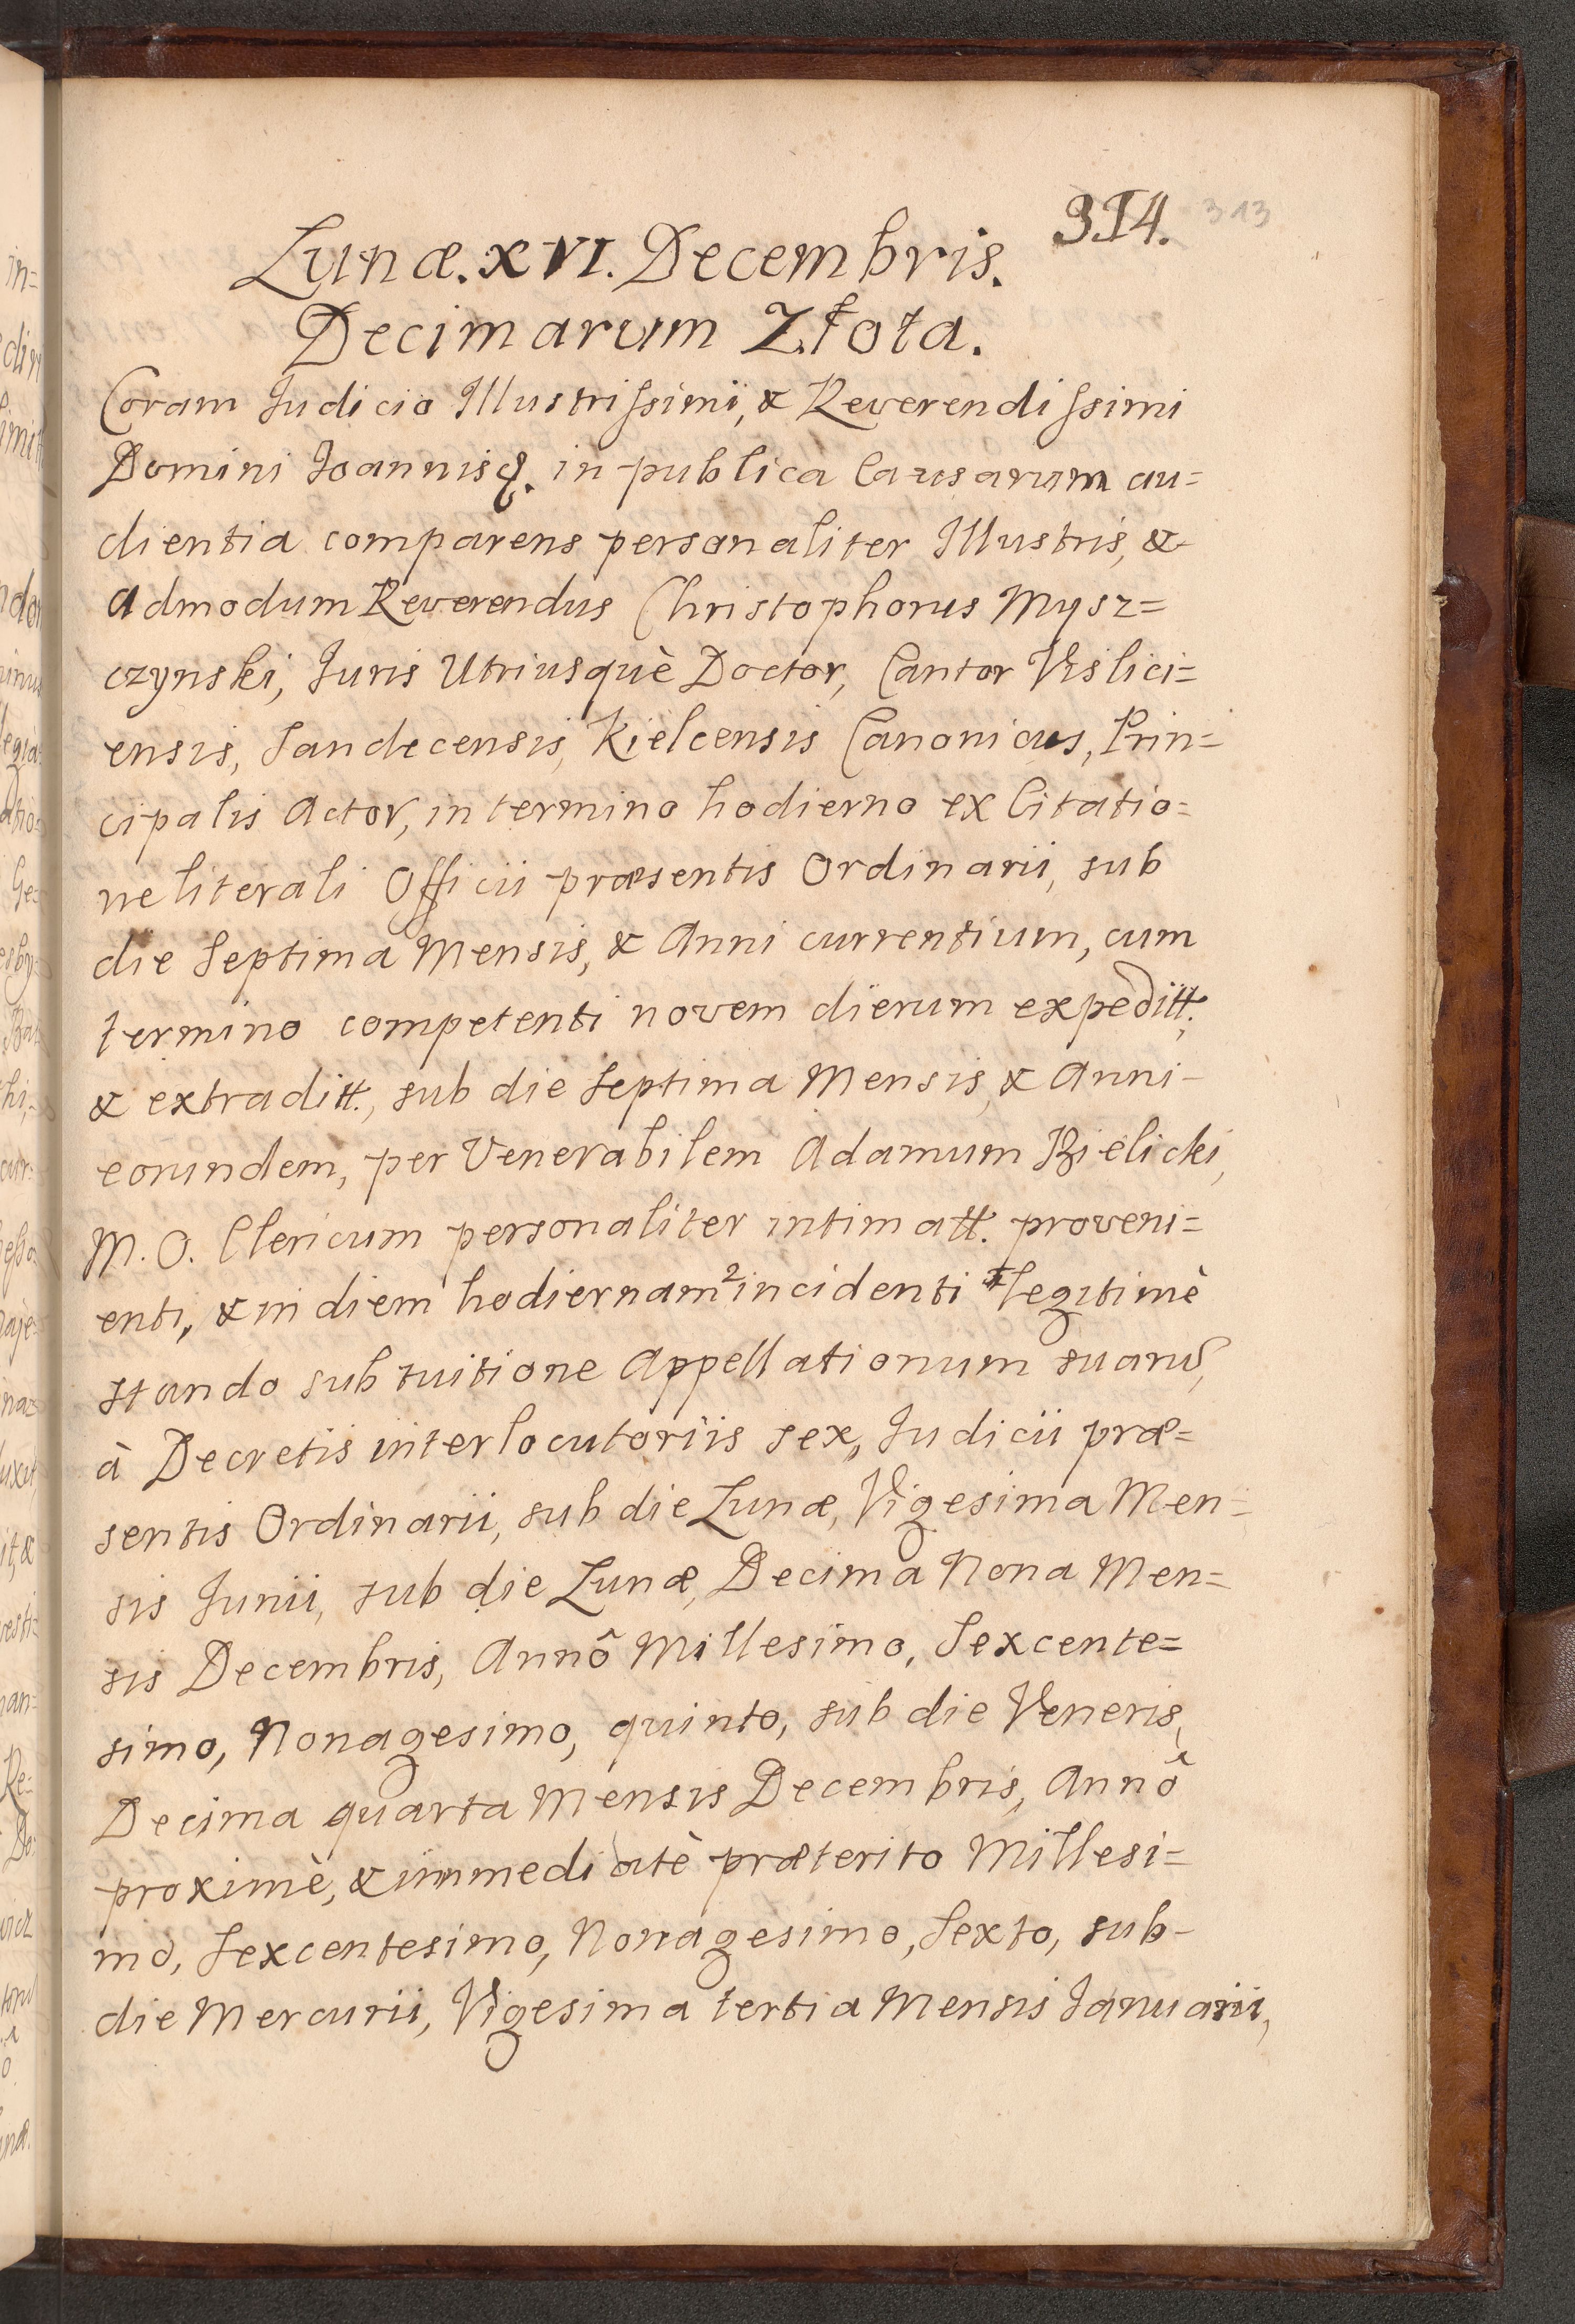 314. 313
Lunæ. XVI. Decembris.
Decimarum Złota.
Coram Judicio Illustrissimi, & Reverendissimi
Domini Joannis &. in publica Causarum au=
dientia comparens personaliter Illustris, &
Admodum Reverendus Christophorus Mysz=
czynski, Juris Utriusquè Doctor, Cantor Vislici=
ensis, Sandecensis, Kielcensis Canonicus, Prin=
cipalis Actor, in termino hodierno ex Citatio=
ne literali Officii præsentis Ordinarii, sub
die Septima Mensis, & Anni currentium, cum
termino competenti novem dierum expeditt.,
& extraditt., sub die Septima Mensis, & Anni
eorundem, per Venerabilem Adamum Bielicki,
M. O. Clericum personaliter intimatt. proveni=
enti, & in diem hodiernam 2 incidenti 1 legitimè
stando sub tuitione Appellationum suarũ,
à Decretis interlocutoriis sex, Judicii præ=
sentis Ordinarii, sub die Lunæ, Vigesima Men=
sis Junii, sub die Lunæ, Decima Nona Men=
sis Decembris, Annô Millesimo, Sexcente=
simo, Nonagesimo, quinto, sub die Veneris,
Decima quarta Mensis Decembris, Annô
proximè, & immediatè præterito Millesi=
mo, Sexcentesimo, Nonagesimo, Sexto, sub
die Mercurii, Vigesima tertia Mensis Januarii,